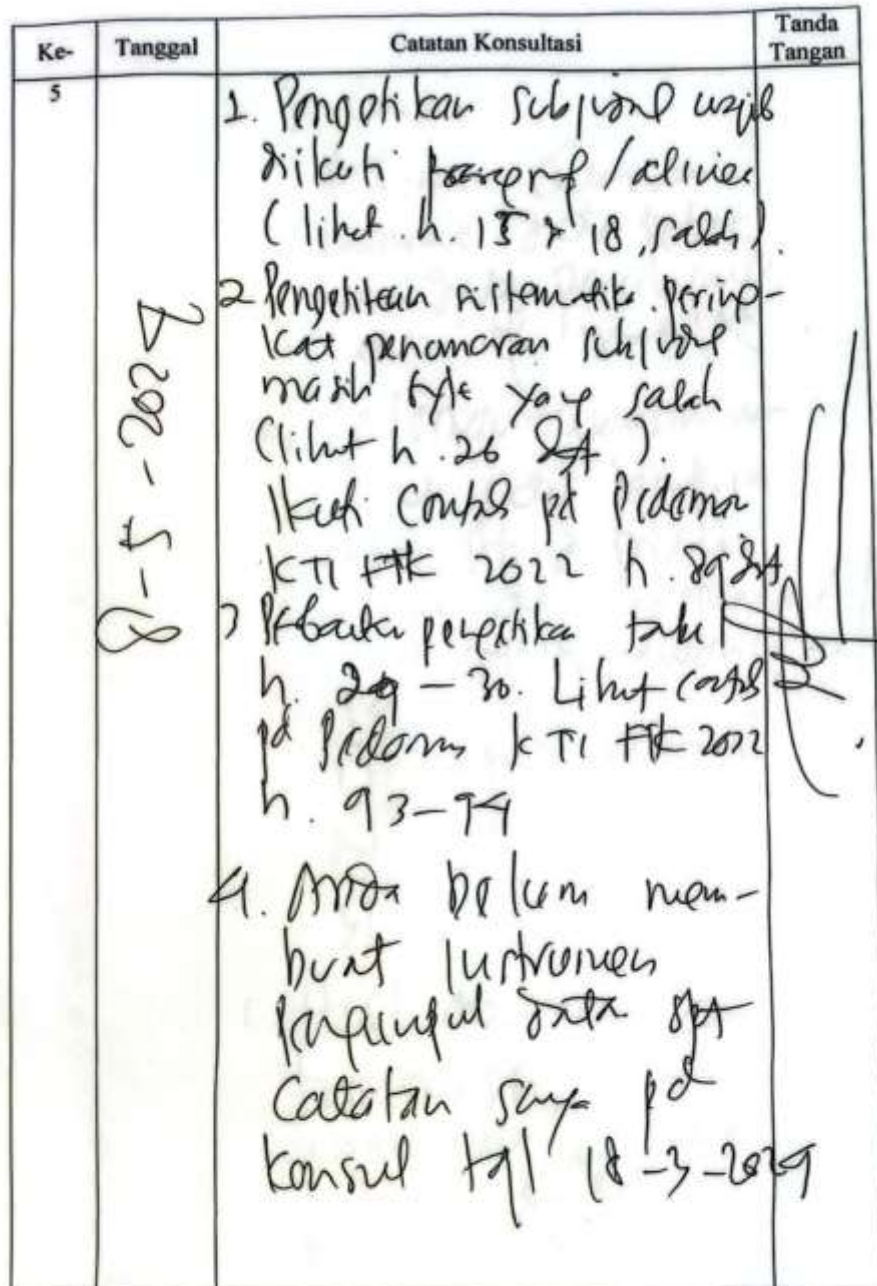 Ke-
Tanggal
Catatan Konsultasi
Tanda
Tangan
5
8-5-2024
1. Pengetikan subjudul wajib
diikuti paragraf/alinea
(lihat h. 15 & 18, salah).
2 Pengetikan sistematika pering-
kat penomoran subjudul
masih byk yang salah
(lihat h. 26 dst).
Ikuti contoh pd Pedoman
KTI FTK 2022 h. 89 dst
3 Perbaiki pengetikan tabel
h. 29-30. Lihat contoh
pd Pedoman KTI FTK 2022
h. 93-94
4. Anda belum mem-
buat instrumen
pengumpul data spt
catatan saya pd
konsul tgl 18-3-2024